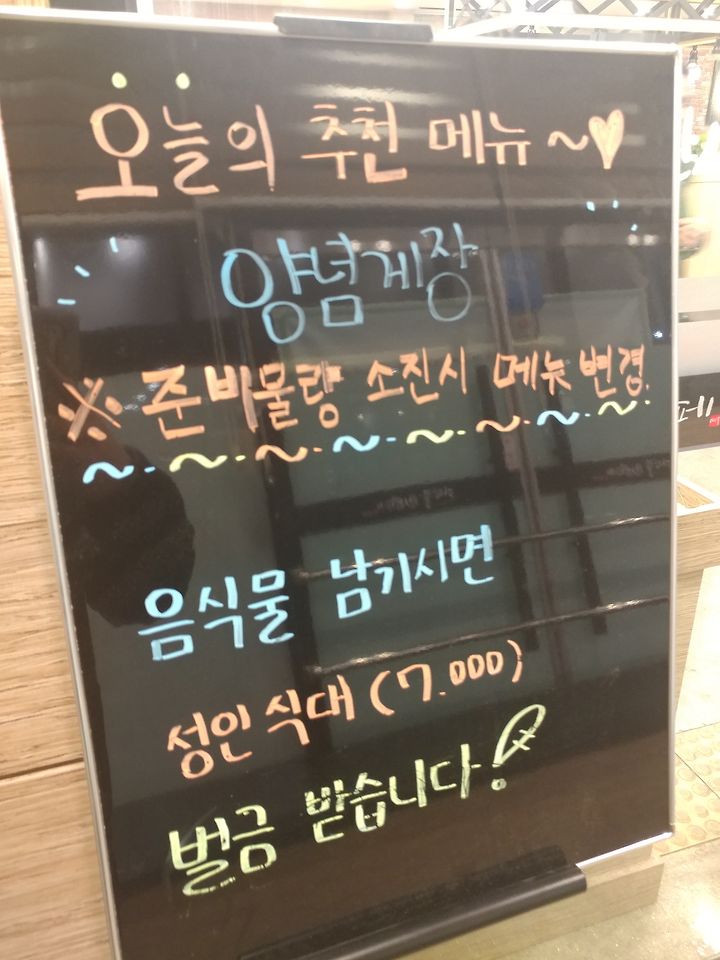 오늘의 추천 메뉴 ~♥
양념게장
※ 준비물량 소진시 메뉴 변경.
음식물 남기시면
성인 식대 (7.000)
벌금 받습니다!